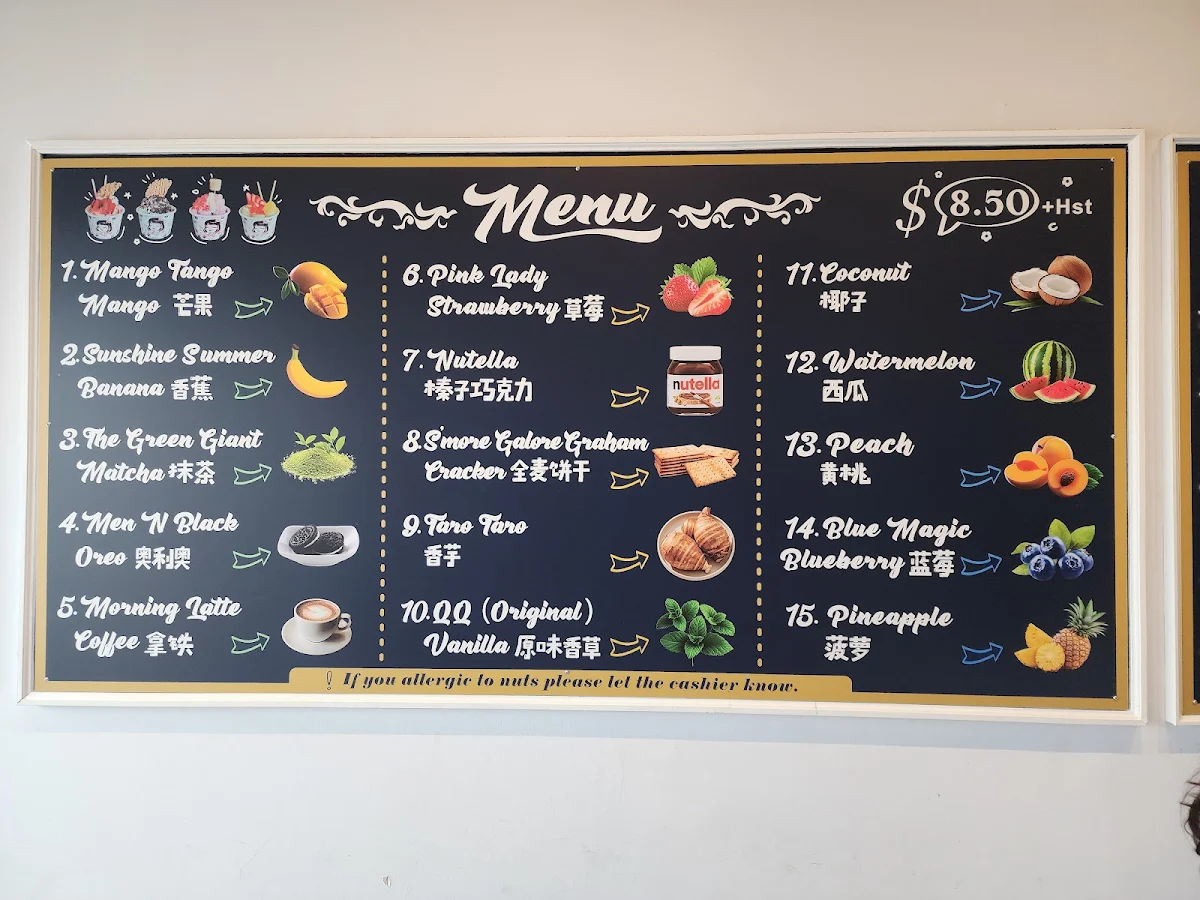 Menu
$ 8.50 +Hst
1. Mango Tango
Mango 芒果
2. Sunshine Summer
Banana 香蕉
3. The Green Giant
Matcha 抹茶
4. Men 'N Black
Oreo 奥利奥
5. Morning Latte
Coffee 拿铁
6. Pink Lady
Strawberry 草莓
7. Nutella
榛子巧克力
nutella
8. S'more Galore Graham
Cracker 全麦饼干
9. Taro Taro
香芋
10. QQ (Original)
Vanilla 原味香草
11. Coconut
椰子
12. Watermelon
西瓜
13. Peach
黄桃
14. Blue Magic
Blueberry 蓝莓
15. Pineapple
菠萝
! If you allergic to nuts please let the cashier know.